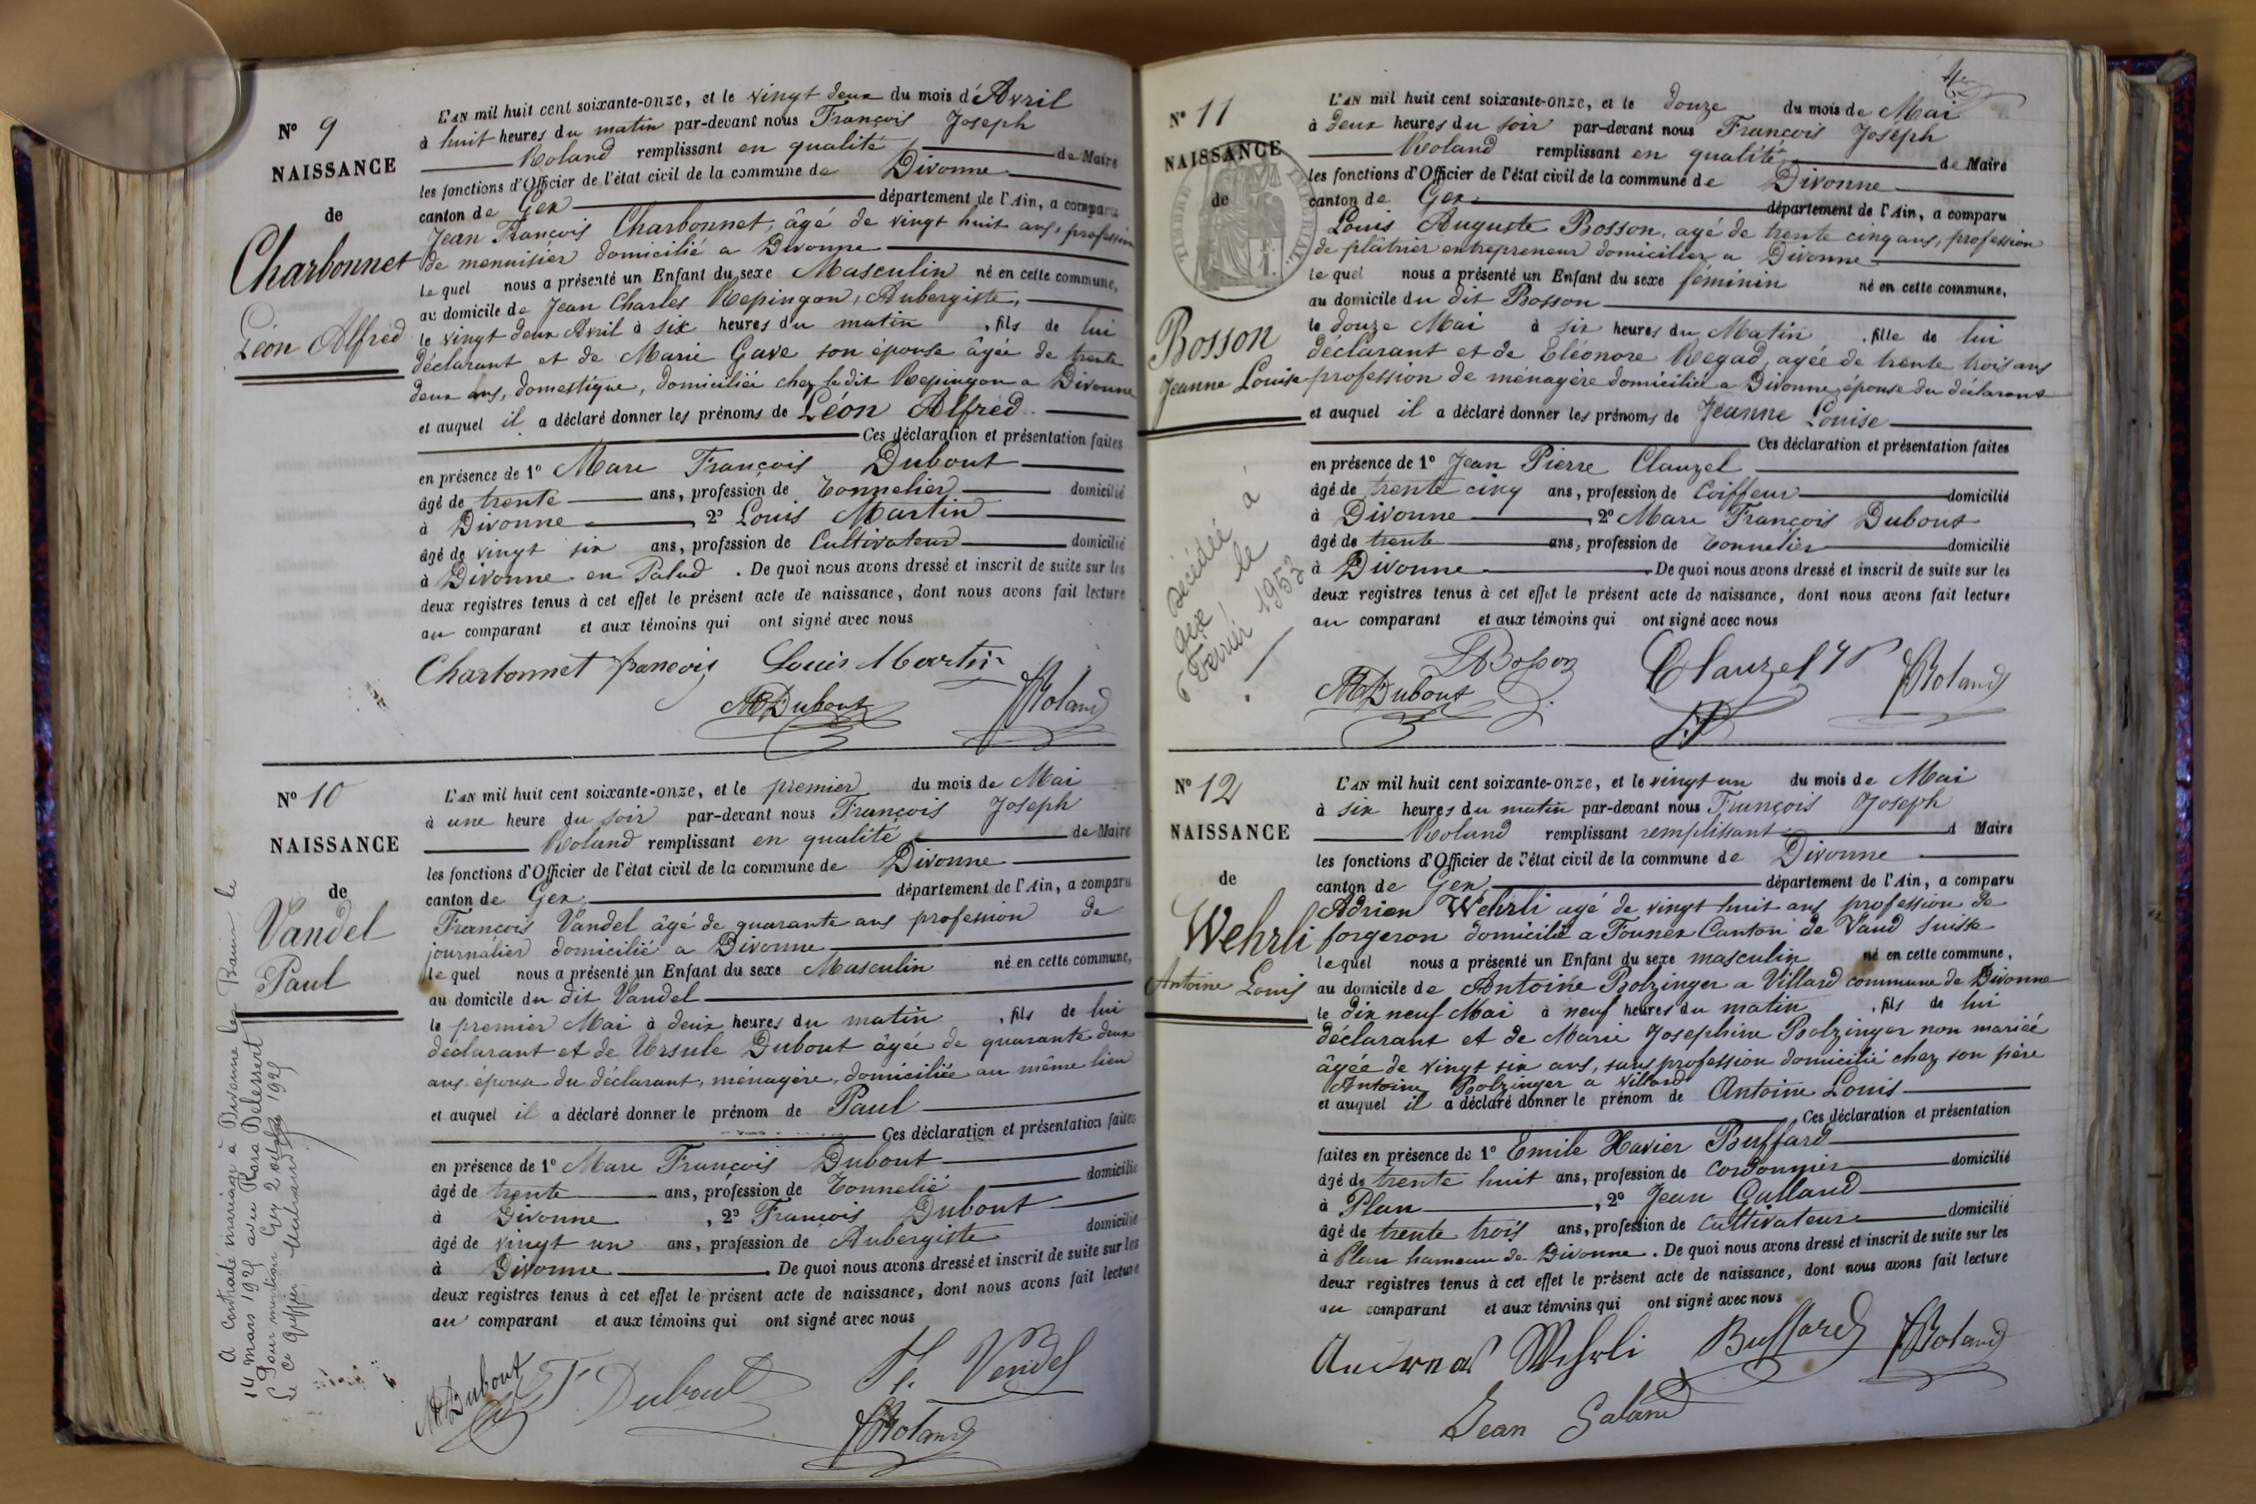 N° 9
NAISSANCE
de
Charbonnet
Léon Alfred
L'AN mil huit cent soixante-onze, et le vingt deux du mois d'Avril
à huit heures du matin par-devant nous François Joseph
Roland remplissant en qualité de Maire
les fonctions d'Officier de l'état civil de la commune de Divonne
canton de Gex département de l'Ain, a comparu
Jean François Charbonnet, âgé de vingt huit ans, profession
de menuisier domicilié a Divonne
le quel nous a présenté un Enfant du sexe Masculin né en cette commune,
au domicile de Jean Charles Repingon, Aubergiste,
le vingt deux Avril à six heures du matin , fils de lui
déclarant et de Marie Gave son épouse âgée de trente
deux ans, domestique, domiciliée chez le dit Repingon a Divonne
et auquel il a déclaré donner les prénoms de Léon Alfred
Ces déclaration et présentation faites
en présence de 1° Marc François Dubout
âgé de trente ans, profession de Tonnelier domicilié
à Divonne , 2° Louis Martin
âgé de vingt six ans, profession de Cultivateur domicilié
à Divonne en Palud . De quoi nous avons dressé et inscrit de suite sur les
deux registres tenus à cet effet le présent acte de naissance, dont nous avons fait lecture
au comparant et aux témoins qui ont signé avec nous
Charbonnet françois Louis Martin
MDubout JRoland
N° 10
NAISSANCE
de
Vandel
Paul
A contracté mariage à Divonne les Bains le
14 mars 1925 avec Rosa Delessert
Pour mention Gex 2 octobre 1925
Le Greffier
L'AN mil huit cent soixante-onze, et le premier du mois de Mai
à une heure du soir par-devant nous François Joseph
Roland remplissant en qualité de Maire
les fonctions d'Officier de l'état civil de la commune de Divonne
canton de Gex département de l'Ain, a comparu
François Vandel âgé de quarante ans profession de
journalier domicilié a Divonne
le quel nous a présenté un Enfant du sexe Masculin né en cette commune,
au domicile du dit Vandel
le premier Mai à deux heures du matin , fils de lui
déclarant et de Ursule Dubout âgée de quarante deux
ans épouse du déclarant, ménagère, domiciliée au même lieu
et auquel il a déclaré donner le prénom de Paul
Ces déclaration et présentation faites
en présence de 1° Marc François Dubout
âgé de trente ans, profession de Tonnelié domicilié
à Divonne , 2° François Dubout
âgé de vingt un ans, profession de Aubergiste domicilié
à Divonne . De quoi nous avons dressé et inscrit de suite sur les
deux registres tenus à cet effet le présent acte de naissance, dont nous avons fait lecture
au comparant et aux témoins qui ont signé avec nous
MDubout F Dubout F. Vendel
JRoland
N° 11
NAISSANCE
de
TIMBRE IMPERIAL
Bosson
Jeanne Louise
Décédée à
Gex le
6 Février 1953
L'AN mil huit cent soixante-onze, et le douze du mois de Mai
à deux heures du soir par-devant nous François Joseph
Roland remplissant en qualité de Maire
les fonctions d'Officier de l'état civil de la commune de Divonne
canton de Gex département de l'Ain, a comparu
Louis Auguste Bosson, agé de trente cinq ans, profession
de plâtrier entrepreneur domicilier a Divonne
le quel nous a présenté un Enfant du sexe féminin né en cette commune,
au domicile du dit Bosson
le douze Mai à six heures du Matin , fille de lui
déclarant et de Eléonore Regad, agée de trente trois ans
profession de ménagère domiciliée a Divonne, épouse du déclarant
et auquel il a déclaré donner les prénoms de Jeanne Louise
Ces déclaration et présentation faites
en présence de 1° Jean Pierre Clauzel
âgé de trente cinq ans, profession de Coiffeur domicilié
à Divonne , 2° Marc François Dubout
âgé de trente ans, profession de Tonnelier domicilié
à Divonne . De quoi nous avons dressé et inscrit de suite sur les
deux registres tenus à cet effet le présent acte de naissance, dont nous avons fait lecture
au comparant et aux témoins qui ont signé avec nous
MDubout LBosson Clauzel JP JRoland
N° 12
NAISSANCE
de
Wehrli
Antoine Louis
L'AN mil huit cent soixante-onze, et le vingt un du mois de Mai
à six heures du matin par-devant nous François Joseph
Roland remplissant remplissant d Maire
les fonctions d'Officier de l'état civil de la commune de Divonne
canton de Gex département de l'Ain, a comparu
Adrien Wehrli agé de vingt huit ans profession de
forgeron domicilié a Founex Canton de Vaud Suisse
le quel nous a présenté un Enfant du sexe masculin né en cette commune,
au domicile de Antoine Bolzinger a Villard commune de Divonne
le dix neuf Mai à neuf heures du matin , fils de lui
déclarant et de Marie Josephine Bolzinger non mariée
âgée de vingt six ans, sans profession domicilié chez son père
Antoine Bolzinger a Villard
et auquel il a déclaré donner le prénom de Antoine Louis
Ces déclaration et présentation
faites en présence de 1° Emile Xavier Buffard
âgé de trente huit ans, profession de cordonnier domicilié
à Plan , 2° Jean Galland
âgé de trente trois ans, profession de cultivateur domicilié
à Plan hameau de Divonne . De quoi nous avons dressé et inscrit de suite sur les
deux registres tenus à cet effet le présent acte de naissance, dont nous avons fait lecture
au comparant et aux témoins qui ont signé avec nous
Andreas Wehrli Buffard JRoland
Jean Galand